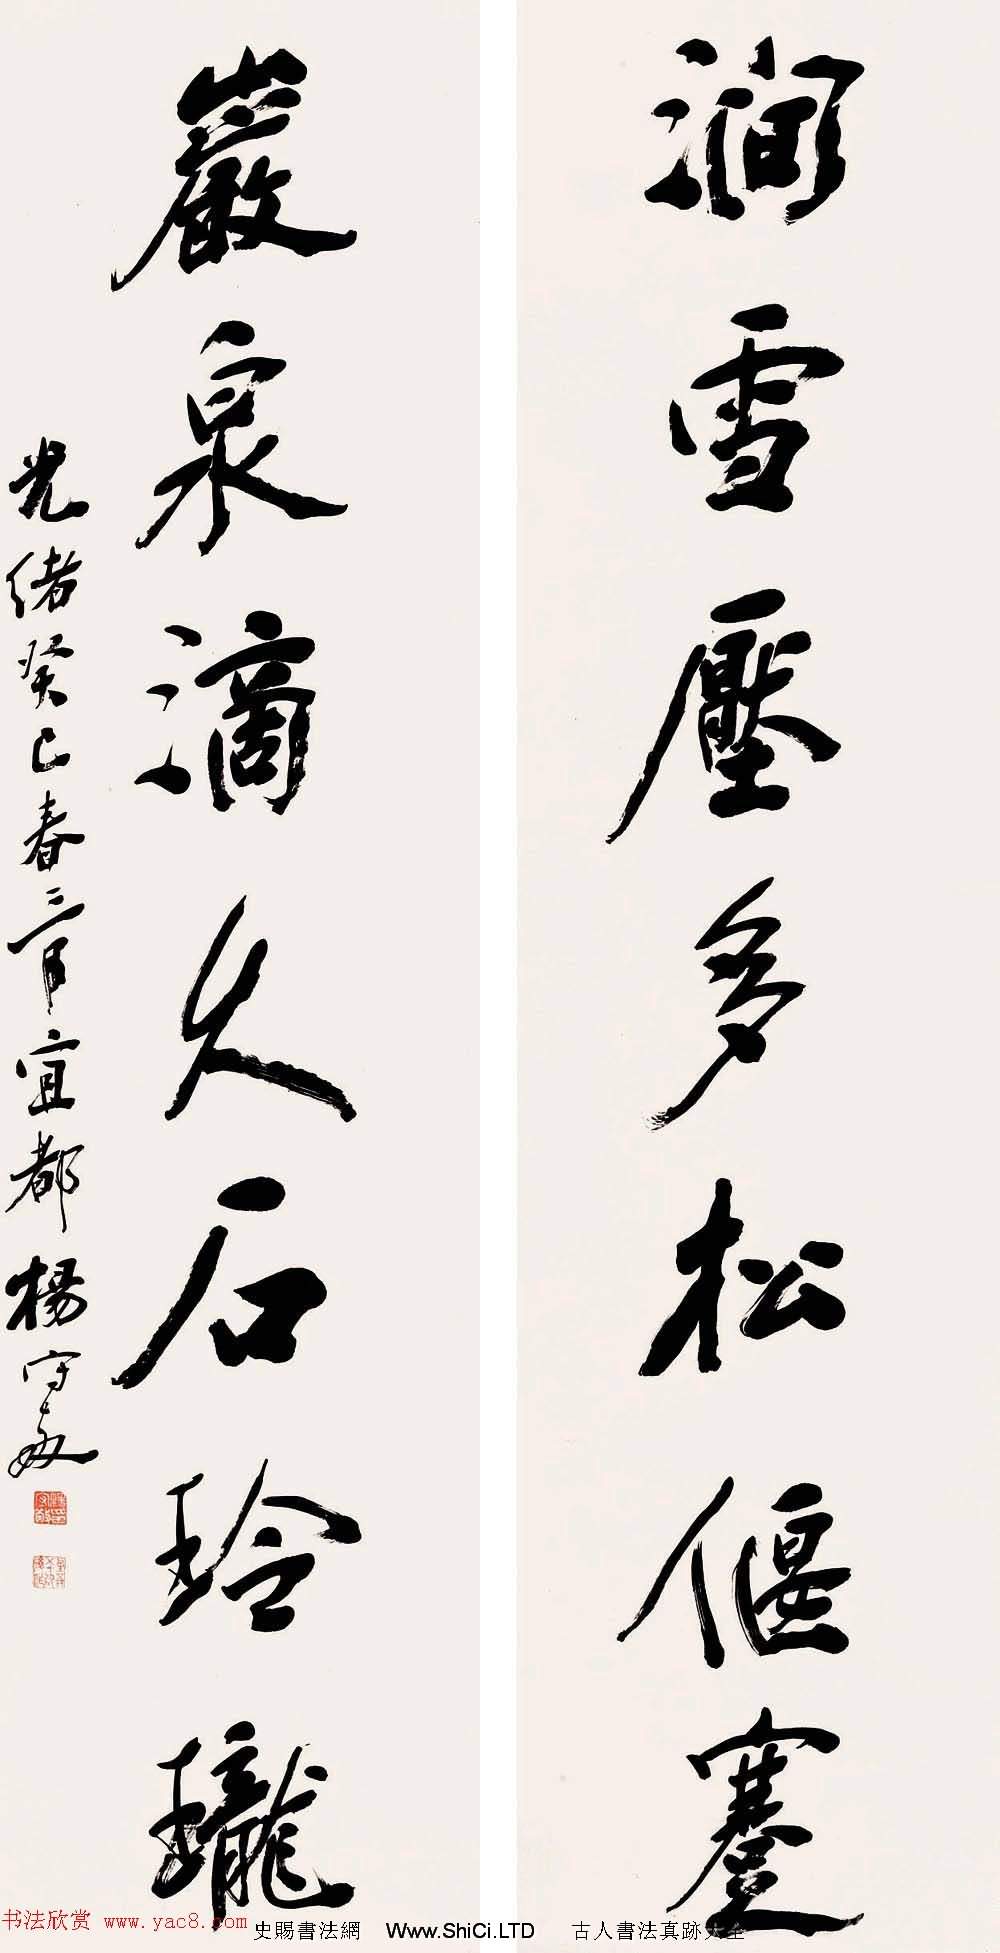 澗雪壓多松偃蹇
巖泉滴久石玲瓏
光緒癸巳春三月宜都楊守敬
书法欣赏 www.yac8.com
史賜書法網 Www.ShiCi.LTD 古人書法真跡大全